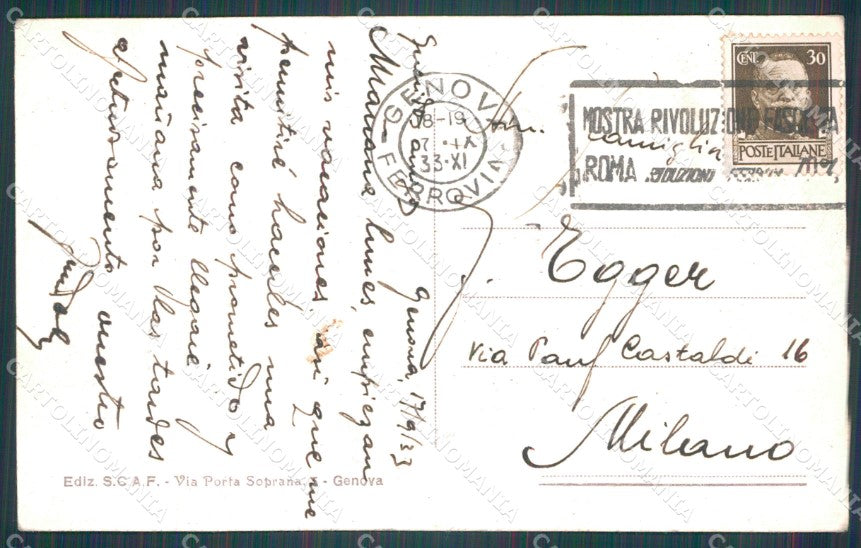 Genova, 17/9/33
Mañana lunes, empiezan
mis vacaciones así que me
permitiré hacerles una
visita como prometido y
precisamente llegaré
mañana por la tardes
afectuosamente vuestro
GENOVA
18-19
33·XI
FERROVIA
CENT 30
POSTE ITALIANE
MOSTRA RIVOLUZIONE FASCISTA
ROMA RIDUZIONI FERROV. 70%
famiglia
Egger
Via Panf Castaldi 16
Milano
Ediz. S.C.A.F. - Via Porta Soprana, - Genova
CARTOLINOMANIA